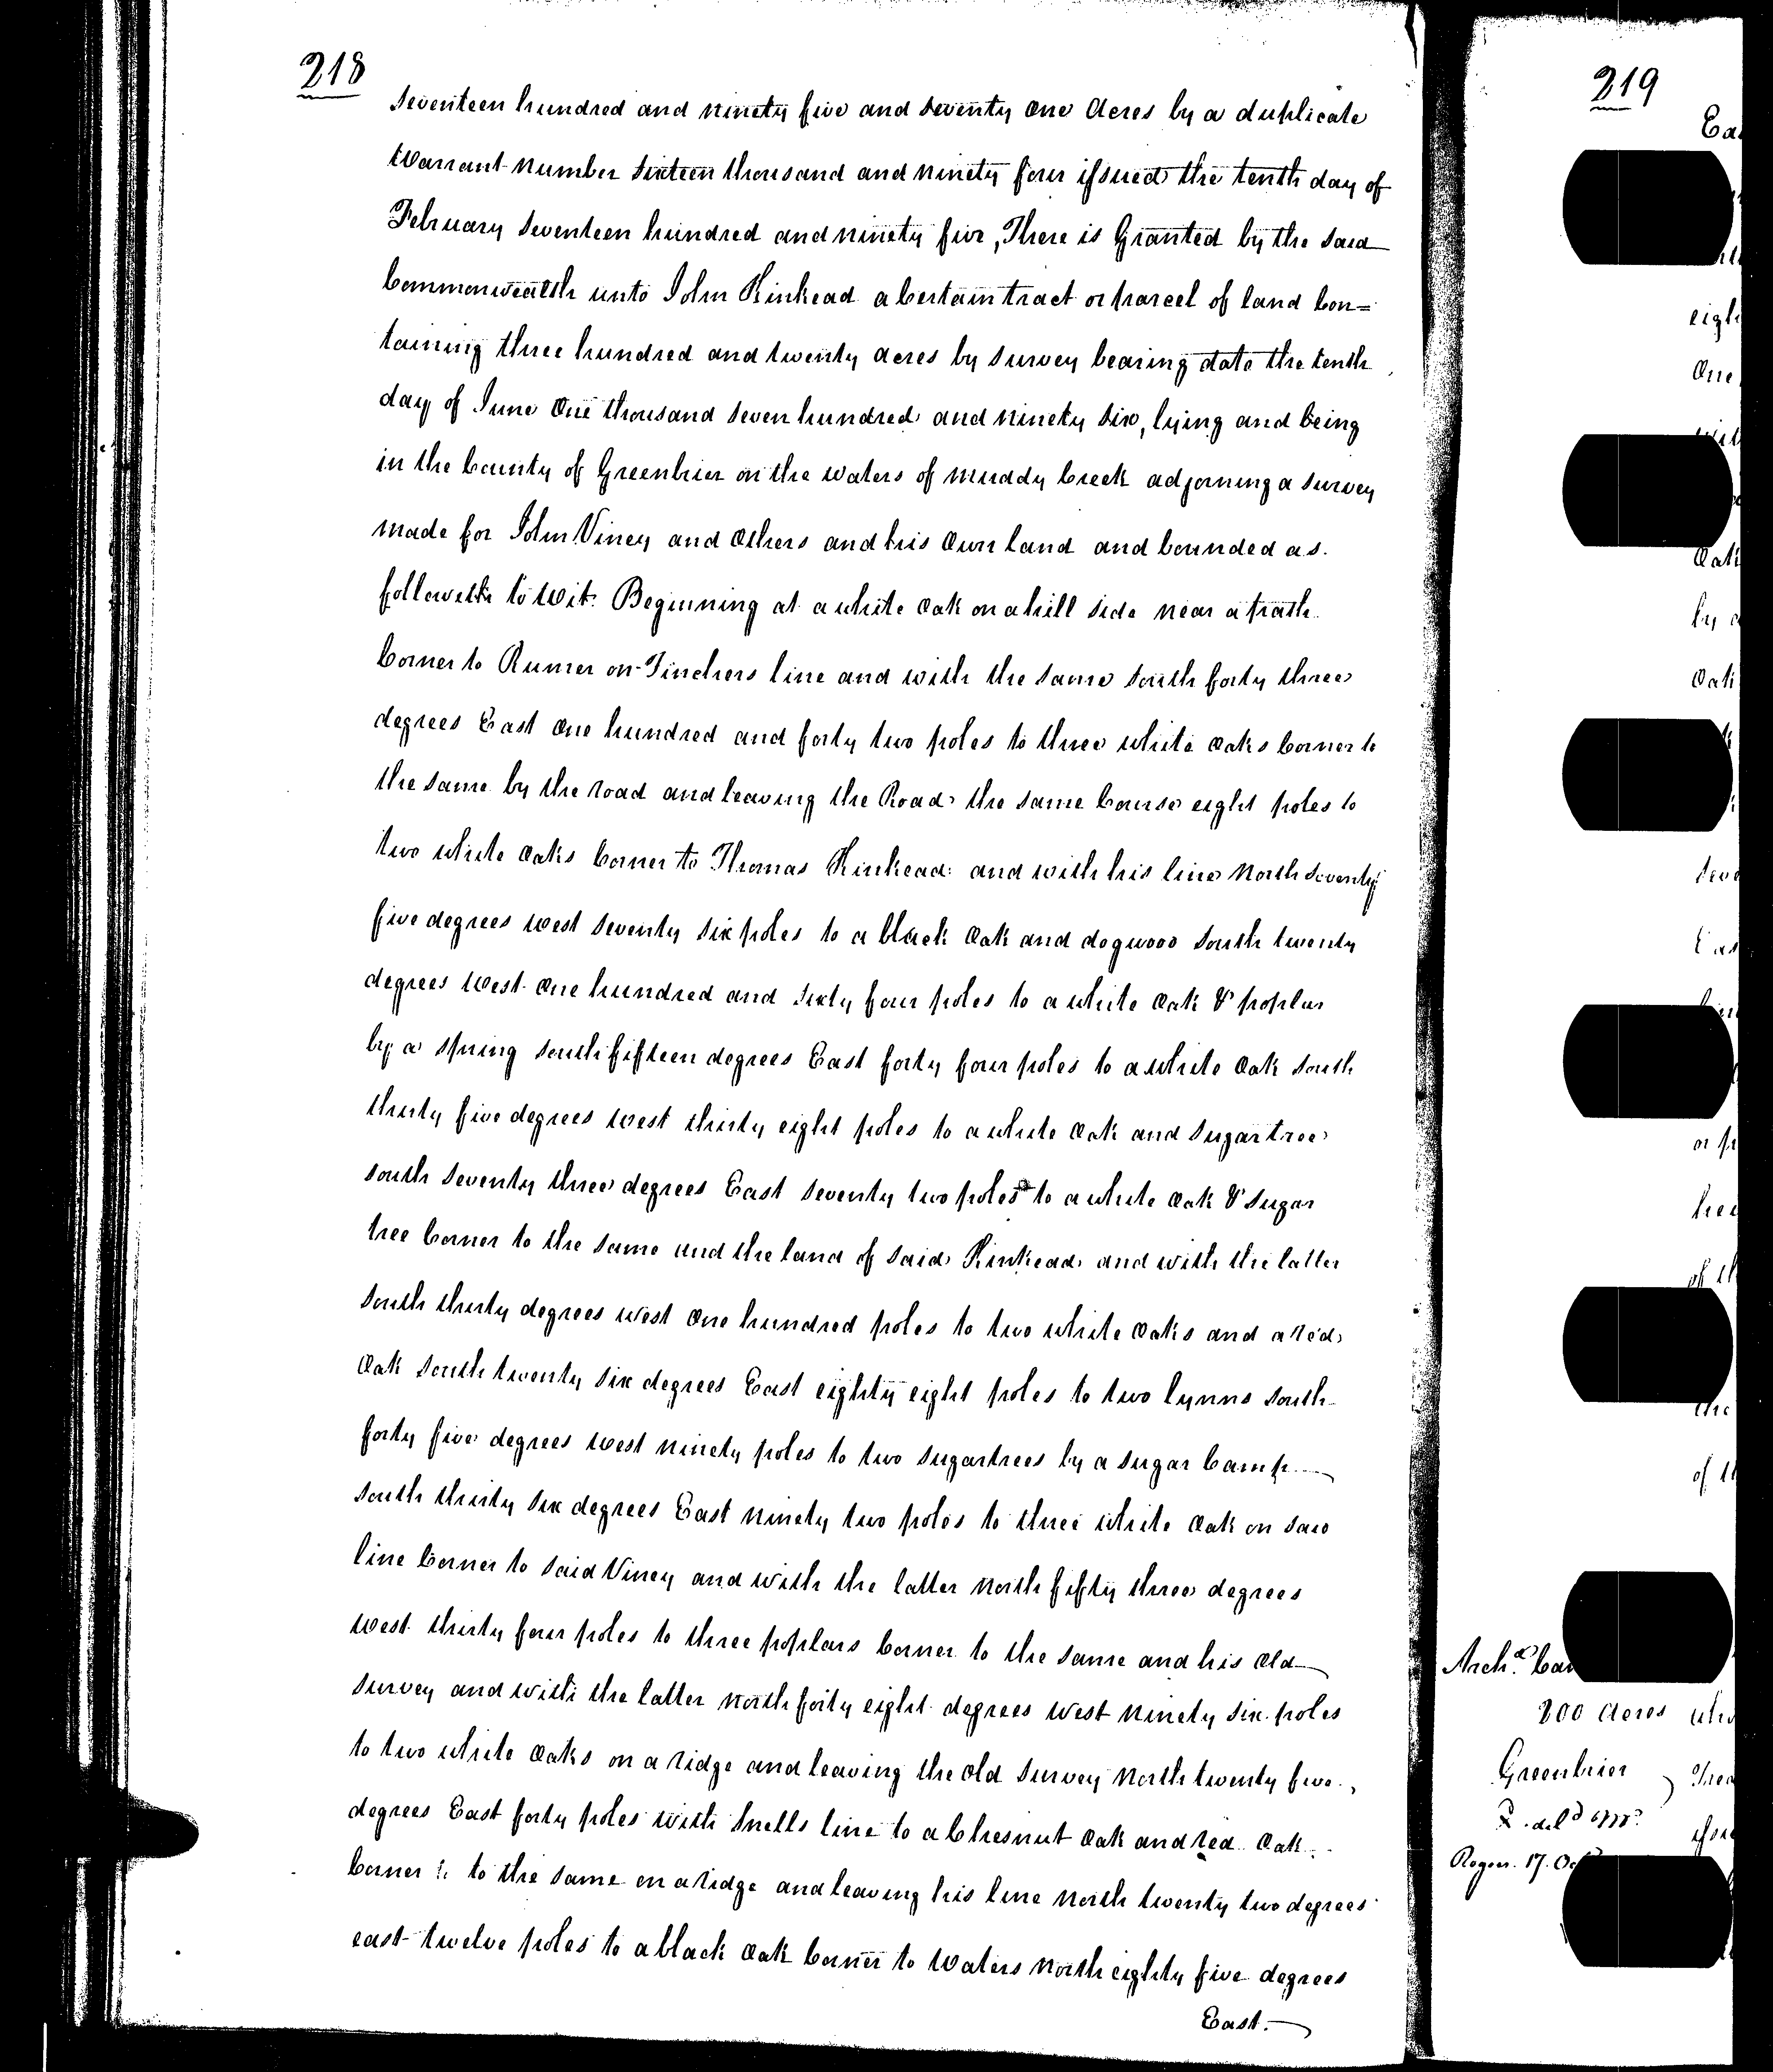 218
Seventeen hundred and ninety five and seventy One Acres by a duplicate
Warrant number Sixteen thousand and ninety four issued the tenth day of
February Seventeen hundred and ninety five, There is Granted by the said
Commonwealth unto John Kinkead a Certain tract or parcel of land Con=
taining three hundred and twenty acres by survey bearing date the tenth
day of June One thousand seven hundred and ninety six, lying and being
in the County of Greenbrier on the waters of muddy Creek adjoining a survey
made for John Viney and Others and his Own land and bounded as
followeth to wit: Beginning at a white Oak on a hill side near a path
Corner to Rumer on Finchers line and with the same south forty three
degrees East One hundred and forty two poles to three white Oaks Corner to
the same by the road and leaving the Road the same Course eight poles to
two white Oaks Corner to Thomas Kinkead and with his line North Seventy
five degrees west seventy six poles to a black Oak and dogwood South twenty
degrees West One hundred and sixty four poles to a white Oak & poplar
by a spring south fifteen degrees East forty four poles to a white Oak South
thirty five degrees west thirty eight poles to a white Oak and Sugartree
south seventy three degrees East seventy two poles to a white Oak & Sugar
tree Corner to the same and the land of said Kinkead and with the latter
South thirty degrees west One hundred poles to two white Oaks and a red
Oak South twenty six degrees East eighty eight poles to two lynns South
forty five degrees west ninety poles to two sugartrees by a sugar Camp
south thirty six degrees East ninety two poles to three white Oak on said
line Corner to said Viney and with the latter North fifty three degrees
West thirty four poles to three poplars Corner to the same and his Old
survey and with the latter north forty eight degrees West ninety six poles
to two white Oaks on a ridge and leaving the Old survey North twenty five
degrees East forty poles with Snells line to a Chesnut Oak and red Oak
Corner to the same on a ridge and leaving his line North twenty two degrees
east twelve poles to a black Oak Corner to Waters North eighty five degrees
East.
219
eigh
One
Oak
by a
Oak
of th
Arch.d
200 Acres
Greenbrier
17. Oct